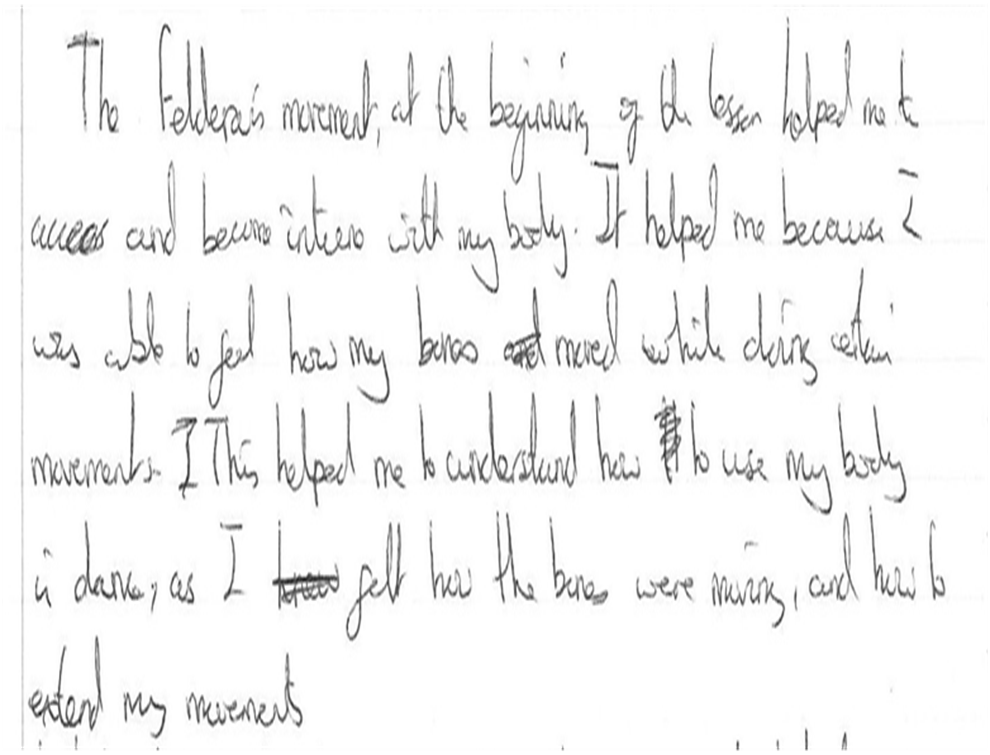 The Feldera's movement, at the beginning of the lesson helped me to
access and become intune with my body. It helped me because I
was able to feel how my bones and moved while doing certain
movements. I This helped me to understand how to use my body
in dance, as I know felt how the bones were moving, and how to
extend my movements